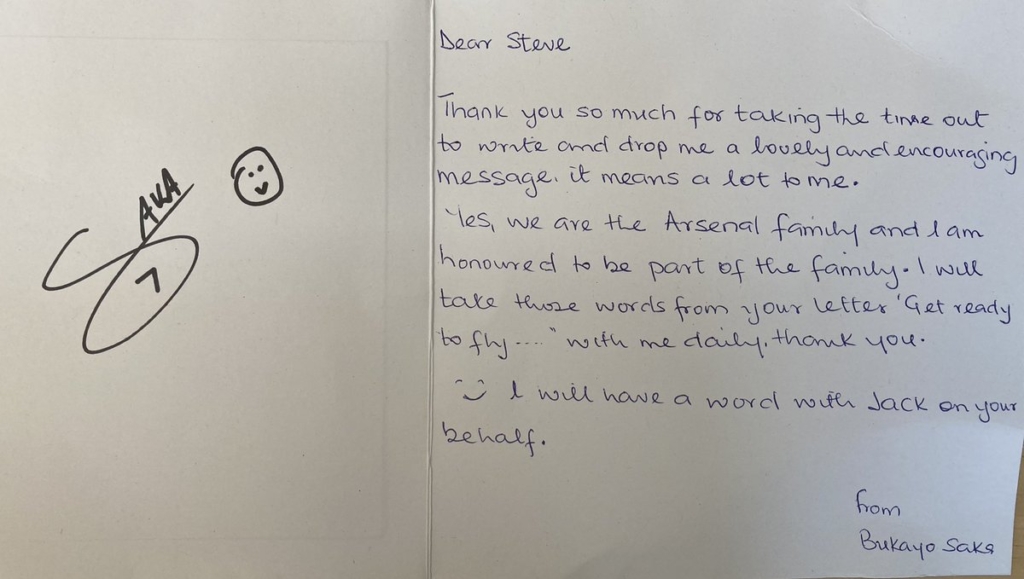 SAKA
7
Dear Steve
Thank you so much for taking the time out
to write and drop me a lovely and encouraging
message. it means a lot to me.
Yes, we are the Arsenal family and I am
honoured to be part of the family. I will
take those words from your letter 'Get ready
to fly...." with me daily, thank you.
I will have a word with Jack on your
behalf.
from
Bukayo Saka